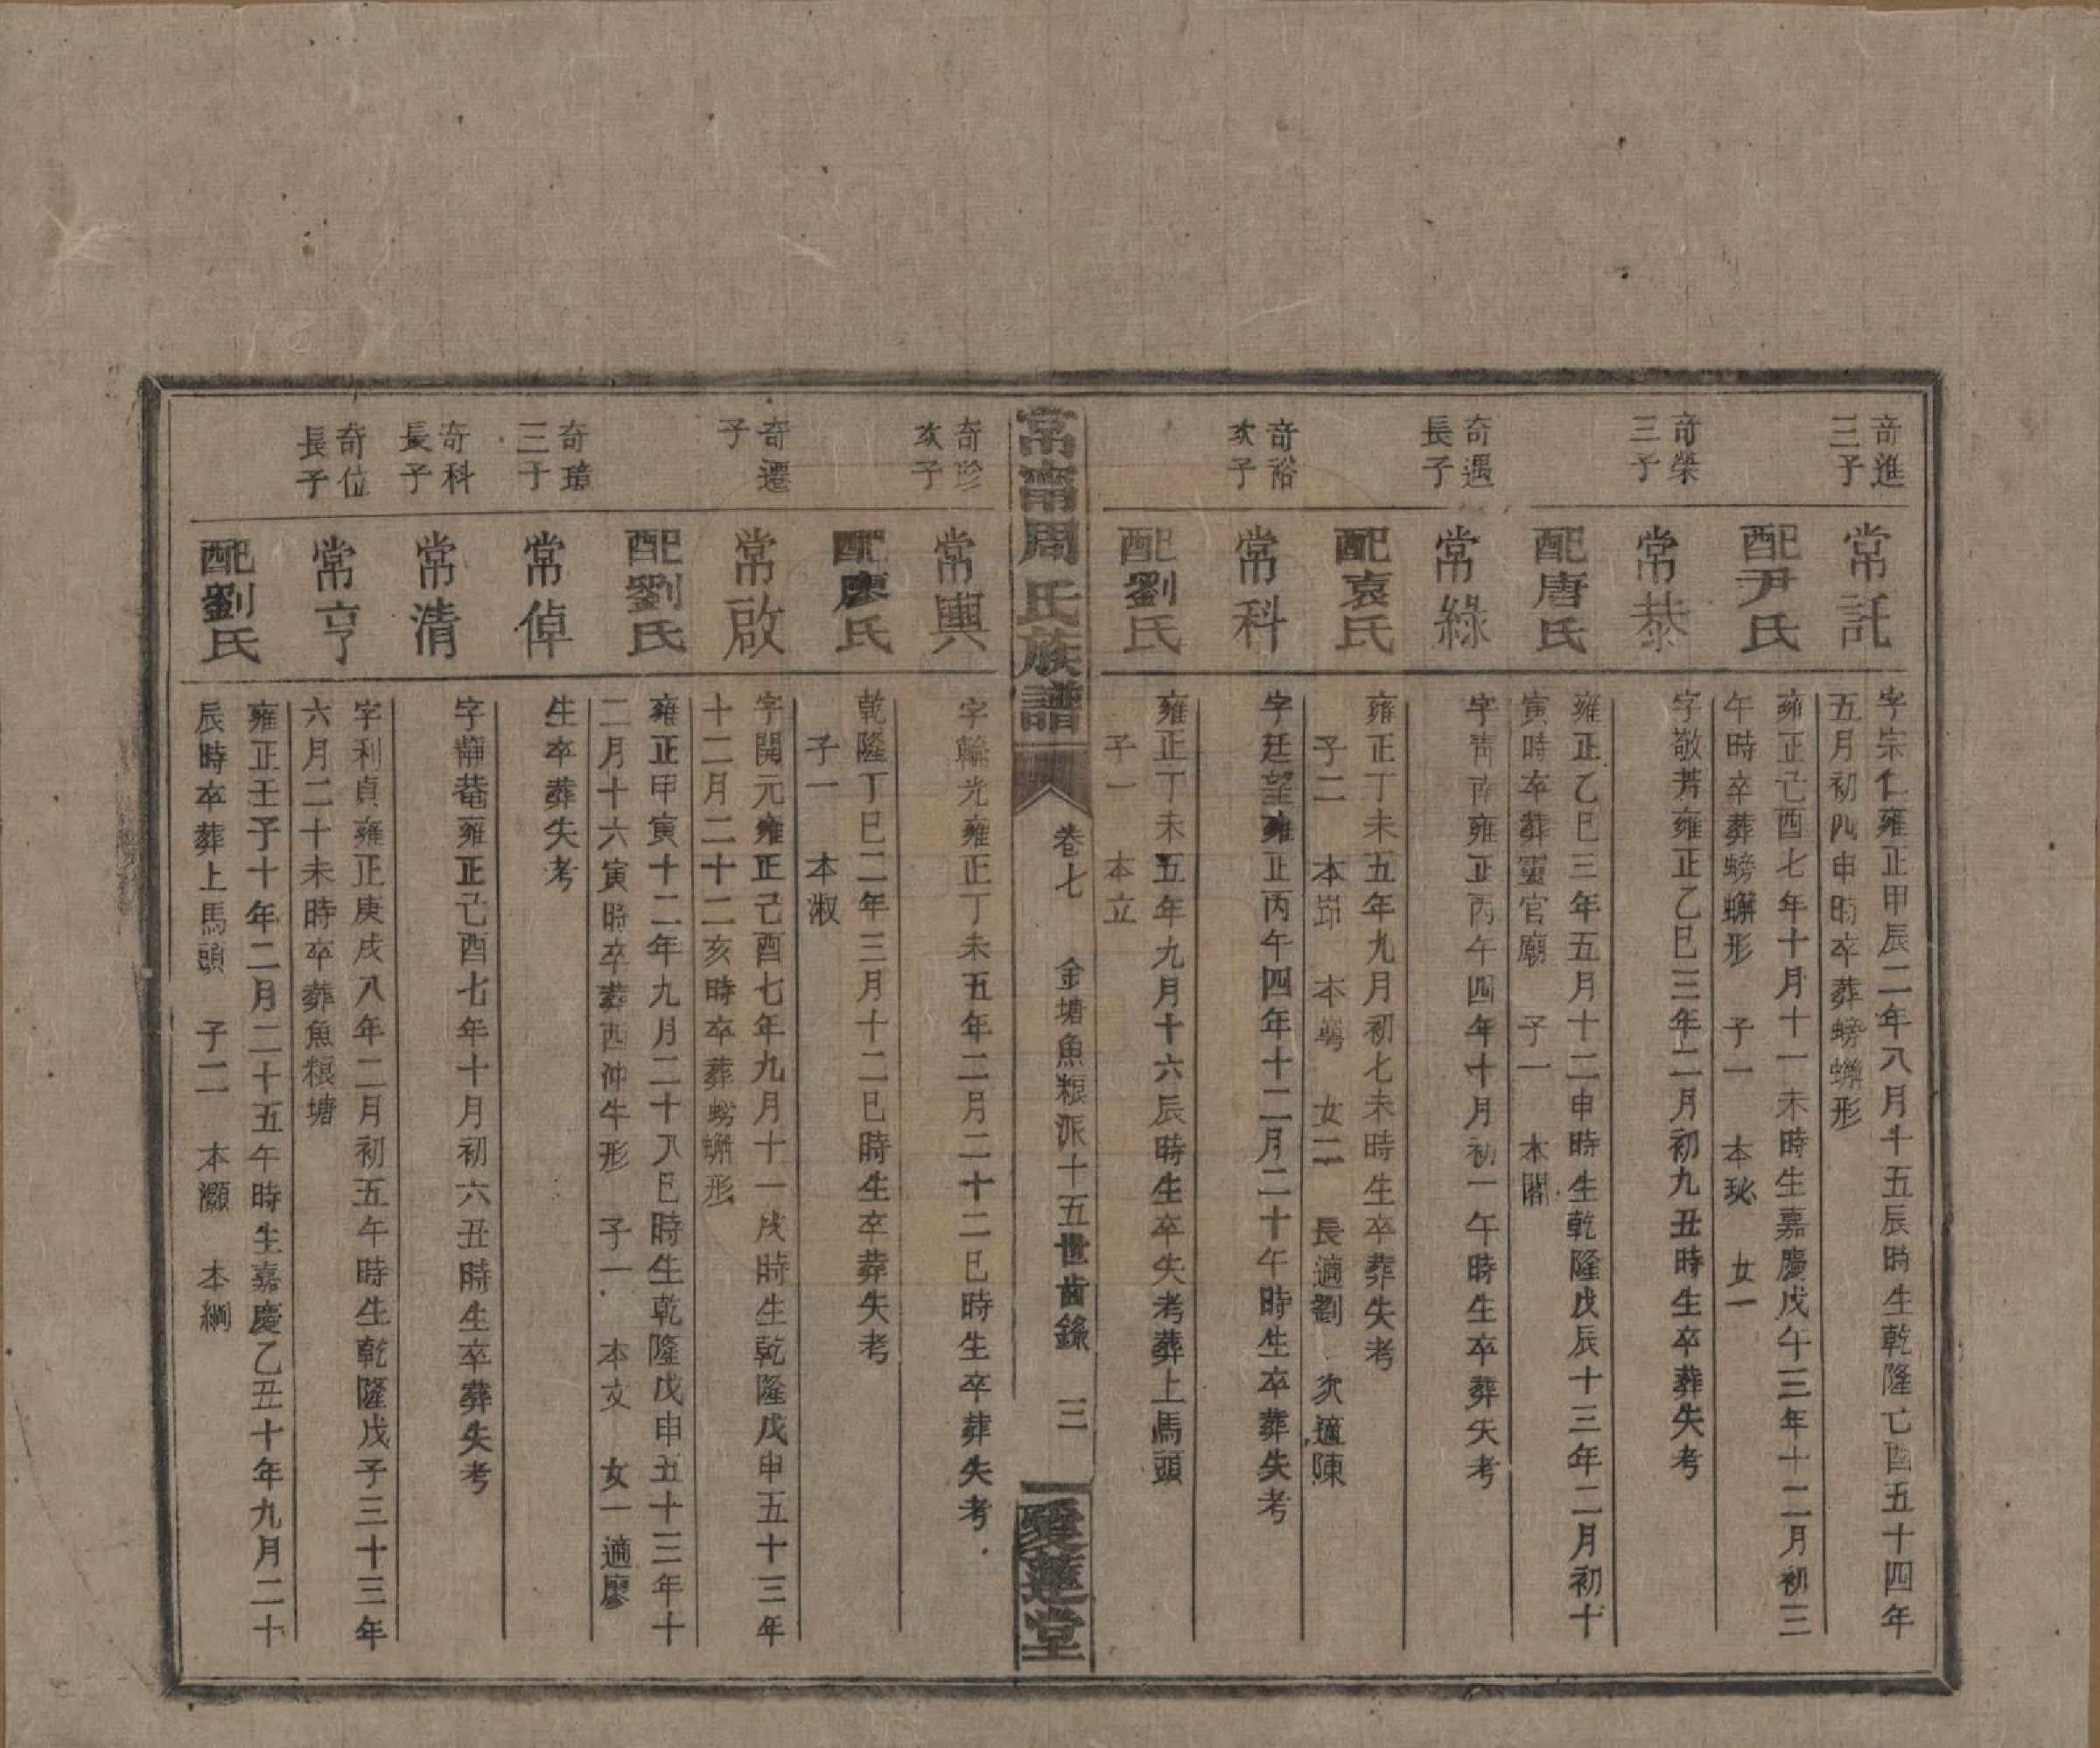 奇進
三子
常託
字宗仁雍正甲辰二年八月十五辰時生乾隆己酉五十四年
五月初四申時卒葬螃蠏形
配尹氏
雍正己酉七年十月十一未時生嘉慶戊午三年十二月初三
午時卒葬螃蠏形 子一 本珌 女一
奇榮
三子
常恭
字敬芳雍正乙巳三年二月初九丑時生卒葬失考
配唐氏
雍正乙巳三年五月十二申時生乾隆戊辰十三年二月初十
寅時卒葬靈官廟 子一 本閣
奇遇
長子
常綠
字靑南雍正丙午四年十月初一午時生卒葬失考
配袁氏
雍正丁未五年九月初七未時生卒葬失考
子二 本昴 本 女二 長適劉 次適陳
奇裕
次子
常科
字廷望雍正丙午四年十二月二十午時生卒葬失考
配劉氏
雍正丁未五年九月十六辰時生卒失考葬上馬頭
子一 本立
常甯周氏族譜 卷七 金塘魚粮派十五世齒錄 三 愛蓮堂
奇珍
次子
常輿
字輪光雍正丁未五年二月二十二巳時生卒葬失考
配廖氏
乾隆丁巳二年三月十二巳時生卒葬失考
子一 本淑
奇遷
子
常啟
字開元雍正己酉七年九月十一戌時生乾隆戊申五十三年
十二月二十二亥時卒葬螃蠏形
配劉氏
雍正甲寅十二年九月二十八巳時生乾隆戊申五十三年十
二月十六寅時卒葬西沖牛形 子一 本文 女一適廖
奇璋
三子
常倬
生卒葬失考
奇科
長子
常清
字靜菴雍正己酉七年十月初六丑時生卒葬失考
奇位
長子
常亨
字利貞雍正庚戌八年二月初五午時生乾隆戊子三十三年
六月二十未時卒葬魚粮塘
配劉氏
雍正壬子十年二月二十五午時生嘉慶乙丑十年九月二十
辰時卒葬上馬頭 子二 本灝 本綱